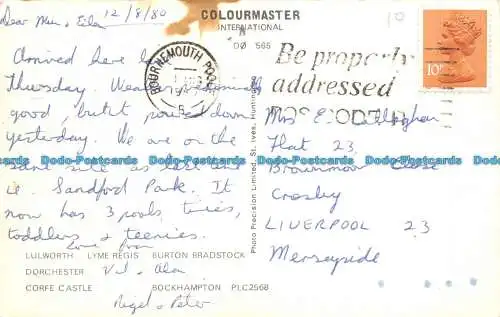 Dear Mum, Eila 12/8/80
COLOURMASTER
INTERNATIONAL
DØ 565
Arrived here
Thursday. Weather
good, but it poured down
yesterday. We are on the
same site as last time
ie. Sandford Park. It
now has 3 pools,
toddlers & teenies.
Love from
V.J. Alan
Nigel & Peter
LULWORTH LYME REGIS BURTON BRADSTOCK
DORCHESTER
CORFE CASTLE BOCKHAMPTON PLC2568
Photo Precision Limited, St. Ives, Huntingdon
BOURNEMOUTH POOLE
Be properly
addressed
POSTCODE
10P
Mrs E. Callaghan
Flat 23
Close
Crosby
LIVERPOOL 23
Merseyside
Dodo-Postcards Dodo-Postcards Dodo-Postcards Dodo-Postcards Dodo-Postcards